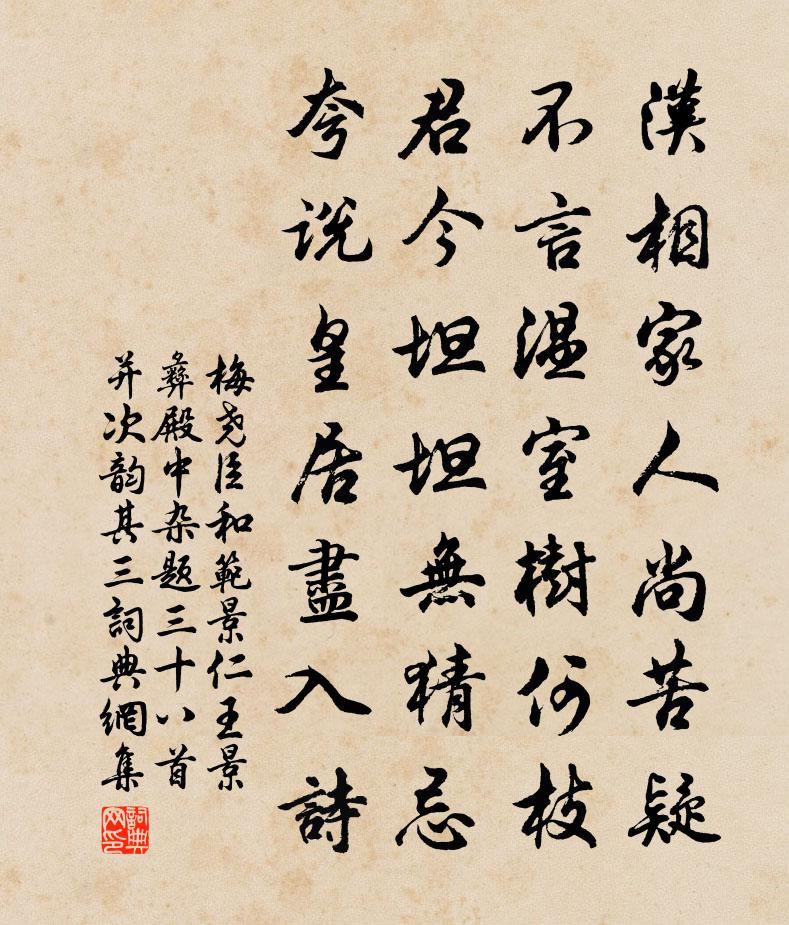 漢相家人尚苦疑
不言温室樹何枝
君今坦坦無猜忌
夸説皇居盡入詩
梅尧臣和範景仁王景
彝殿中杂题三十八首
并次韵其三詞典網集
詞典网印